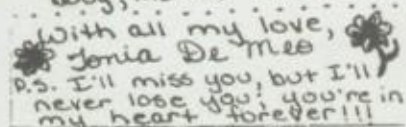 With all my love,
Tonia De Meo
P.S. I'll miss you, but I'll
never lose you, you're in
my heart forever!!!